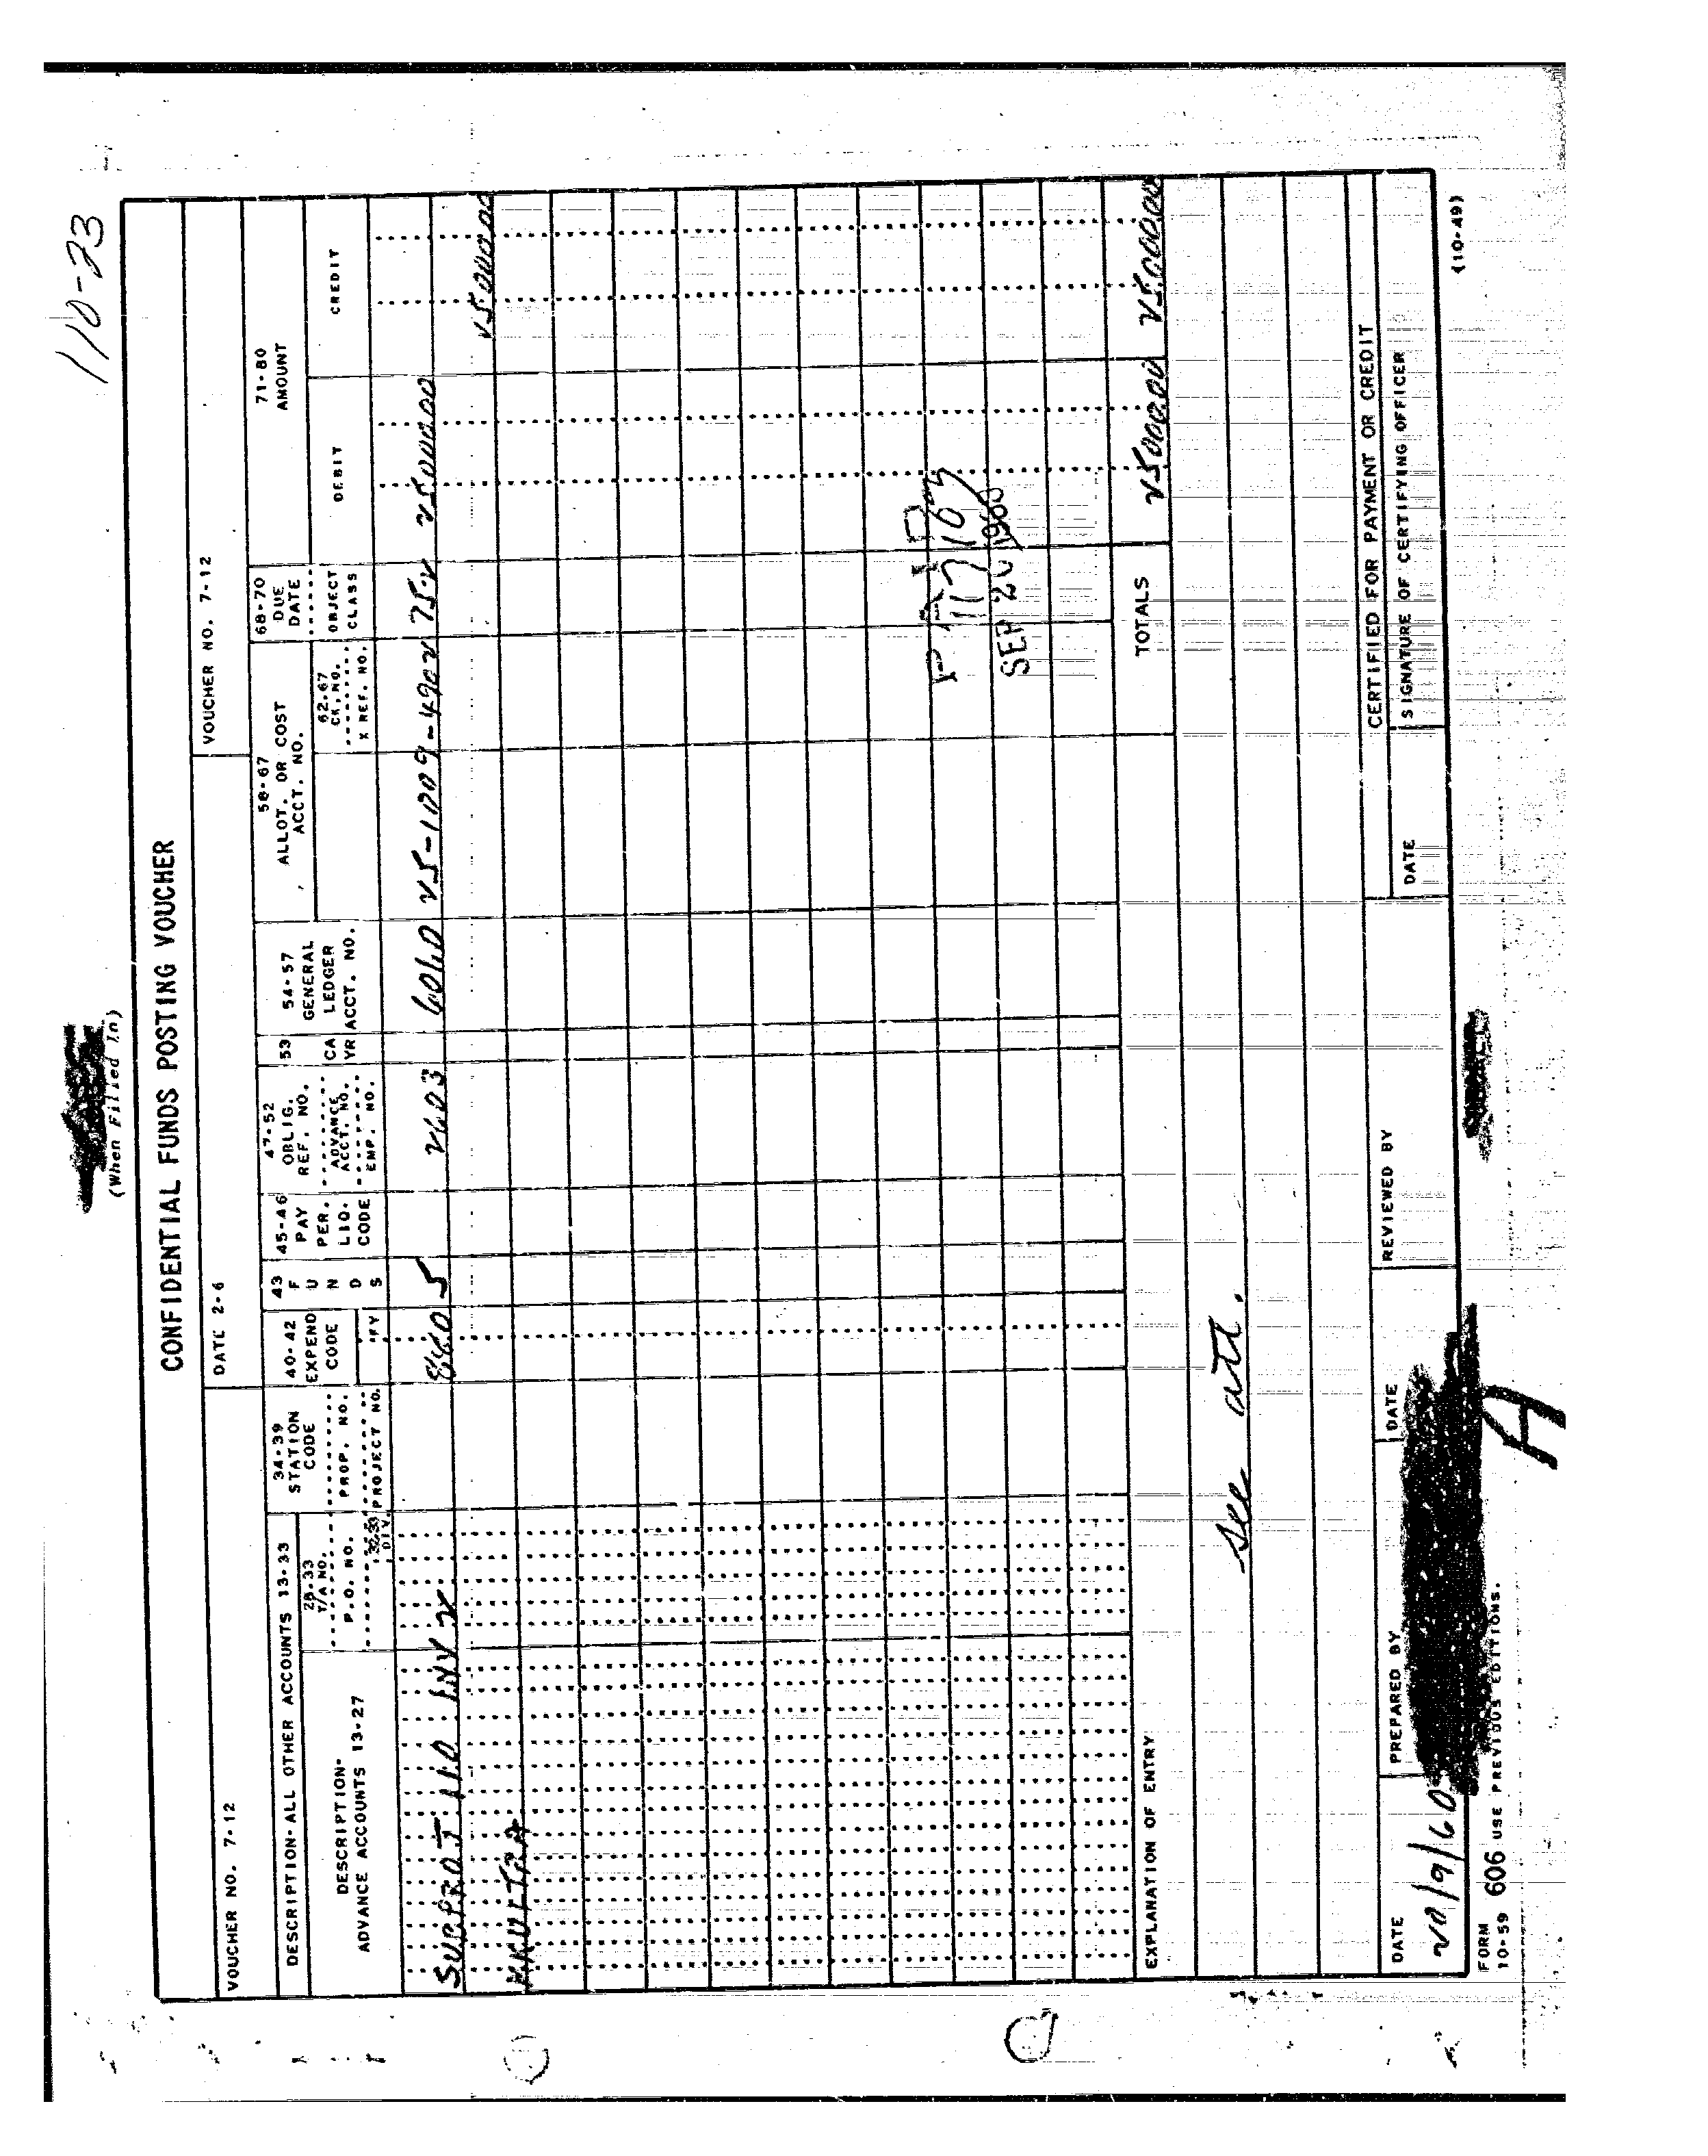 110-23
(When Filled In)
CONFIDENTIAL FUNDS POSTING VOUCHER
VOUCHER NO. 7-12
DATE 2-6
VOUCHER NO. 7-12
DESCRIPTION-ALL OTHER ACCOUNTS 13-33
DESCRIPTION-
ADVANCE ACCOUNTS 13-27
28-33
T/A NO.
P.O. NO.
32-33
DIV.
34-39
STATION
CODE
PROP. NO.
PROJECT NO.
40-42
EXPEND
CODE
FY
43
F
U
N
D
S
45-46
PAY
PER.
LIQ.
CODE
47-52
OBLIG.
REF. NO.
ADVANCE
ACCT. NO.
EMP. NO.
53
CA
YR
54-57
GENERAL
LEDGER
ACCT. NO.
58-67
ALLOT. OR COST
ACCT. NO.
62-67
CK. NO.
X REF. NO.
68-70
DUE
DATE
OBJECT
CLASS
71-80
AMOUNT
DEBIT
CREDIT
SUBPROJ 110 INV 2 860 5 2603 6010 25-1009-4902 752 25000.00
MKULTRA 25000.00
PAID
117163
SEP 20 1960
TOTALS 25000.00 25000.00
EXPLANATION OF ENTRY
see att.
CERTIFIED FOR PAYMENT OR CREDIT
DATE PREPARED BY DATE REVIEWED BY DATE SIGNATURE OF CERTIFYING OFFICER
20/9/60
FORM
10-59 606 USE PREVIOUS EDITIONS.
(10-49)
A